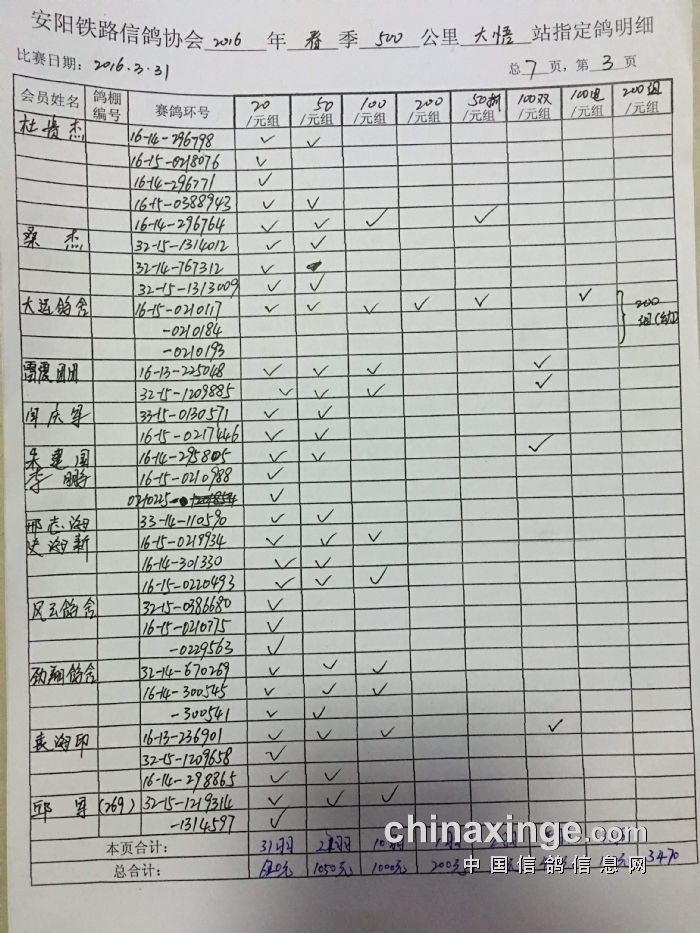 安阳铁路信鸽协会 2016 年 春 季 500 公里 大悟 站指定鸽明细
比赛日期: 2016.3.31 总 7 页,第 3 页
会员姓名 鸽棚编号 赛鸽环号 20/元组 50/元组 100/元组 200/元组 50捆/元组 100双/元组 100电/元组 200组/元组
杰 16-14-296798 ✓ ✓
16-15-0218076 ✓
16-14-296771 ✓
16-15-0388943 ✓ ✓
16-14-296764 ✓ ✓ ✓ ✓
桑杰 32-15-1314012 ✓ ✓
32-14-767312 ✓
32-15-1313009 ✓ ✓
大运鸽舍 16-15-0210117 ✓ ✓ ✓ ✓ ✓ ✓ 200
-0210184
-0210193
雷震团团 16-13-225048 ✓ ✓ ✓ ✓
32-15-1209885 ✓ ✓ ✓ ✓
闫庆军 33-15-0130571 ✓ ✓
16-15-0217446 ✓ ✓
朱建国 16-14-295805 ✓ ✓ ✓
李鹏 16-15-0210988 ✓
0210225 ✓
邢志海 33-14-110590 ✓ ✓
史海新 16-15-0218934 ✓ ✓ ✓
16-14-301330 ✓ ✓
16-15-0220493 ✓ ✓ ✓
风云鸽舍 32-15-0386680 ✓
16-15-0210775 ✓
-0229563 ✓
劲翔鸽舍 32-14-670269 ✓ ✓ ✓
16-14-300545 ✓ ✓ ✓
-300541 ✓ ✓
袁海印 16-13-236901 ✓ ✓ ✓ ✓
32-15-1209658 ✓
16-14-298865 ✓ ✓
邱军 (269) 32-15-1219314 ✓ ✓ ✓
-1314597 ✓
本页合计: 31羽 21羽 10羽
总合计: 620元 1050元 1000元 200元 3470
chinaxinge.com
中国信鸽信息网